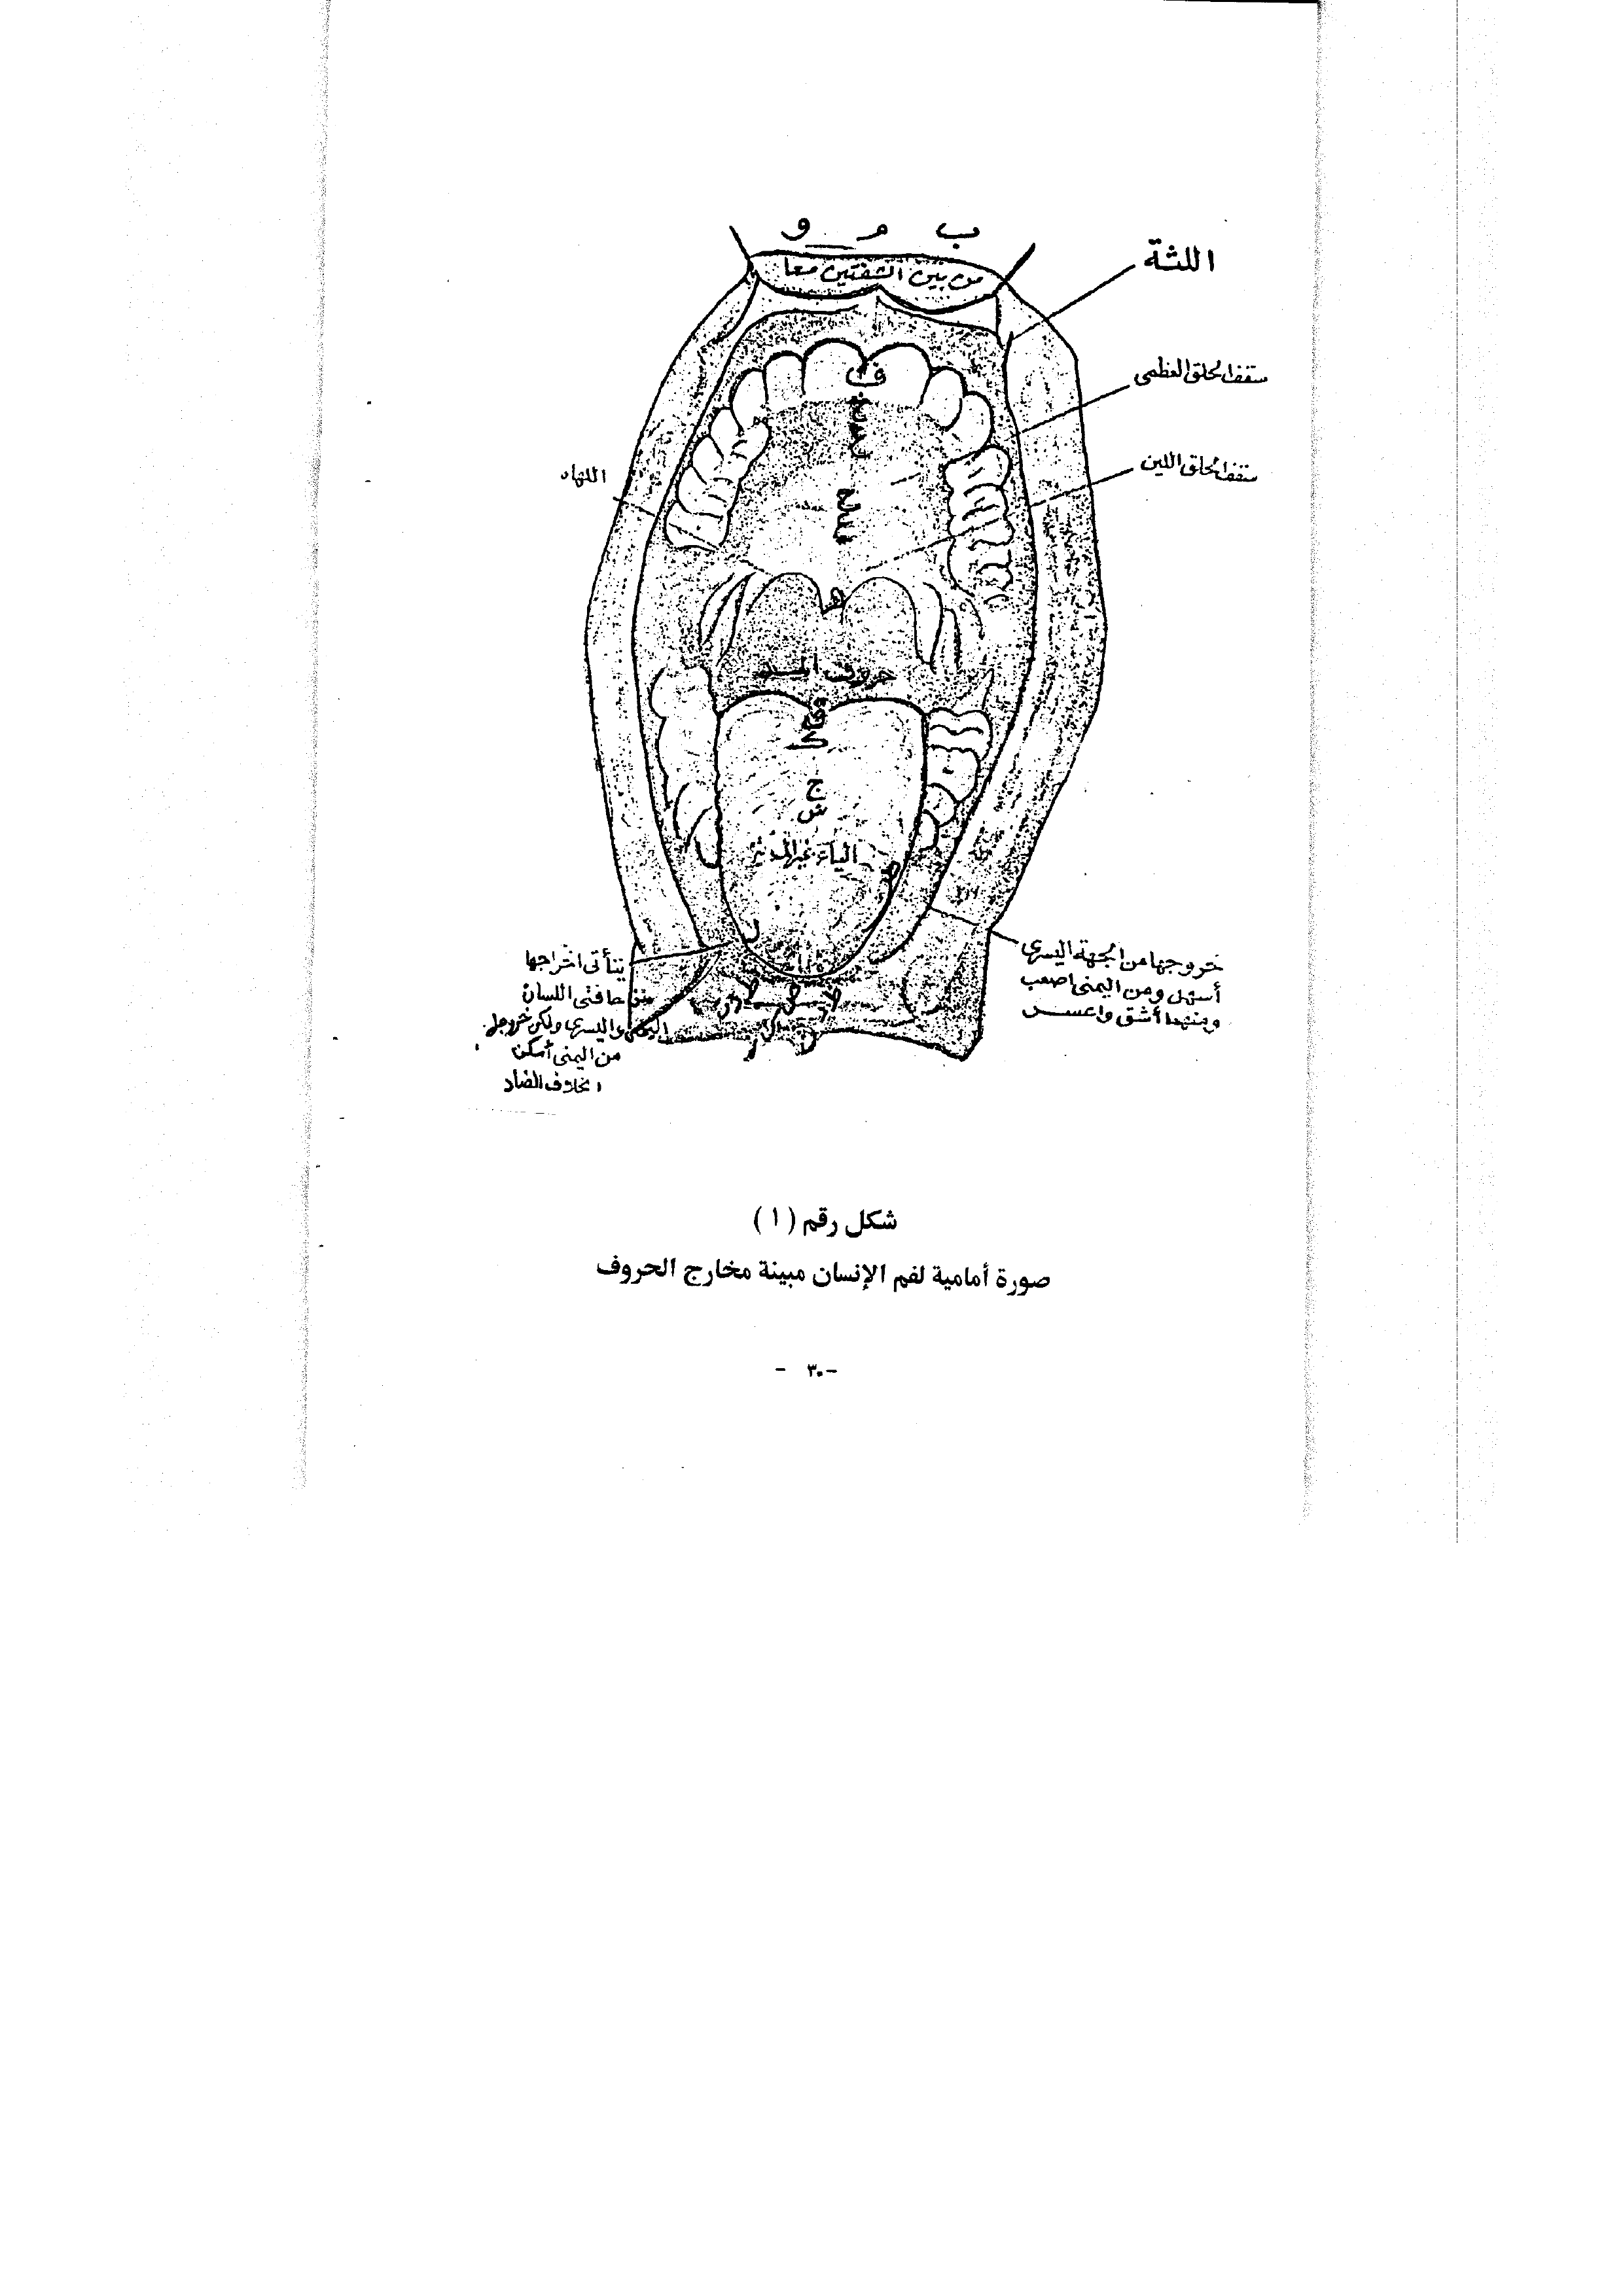 ب م و
من بين الشفتين معا
اللثة
سقف الحلق العظمى
سقف الحلق اللين
اللهاه
ف
ه
حروف المـــد
ق
ك
ج
ش
الياء غير المدية
ض
ل
خروجها من الجهة اليسرى
أسهل ومن اليمنى اصعب
ومنهما أشق واعســر
يتأتى اخراجها
من حافتى اللسان
اليمنى واليسرى ولكن خروجها
من اليمنى أمكن
بخلاف الضاد
شكل رقم (١)
صورة أمامية لفم الإنسان مبينة مخارج الحروف
- ٣٠ -